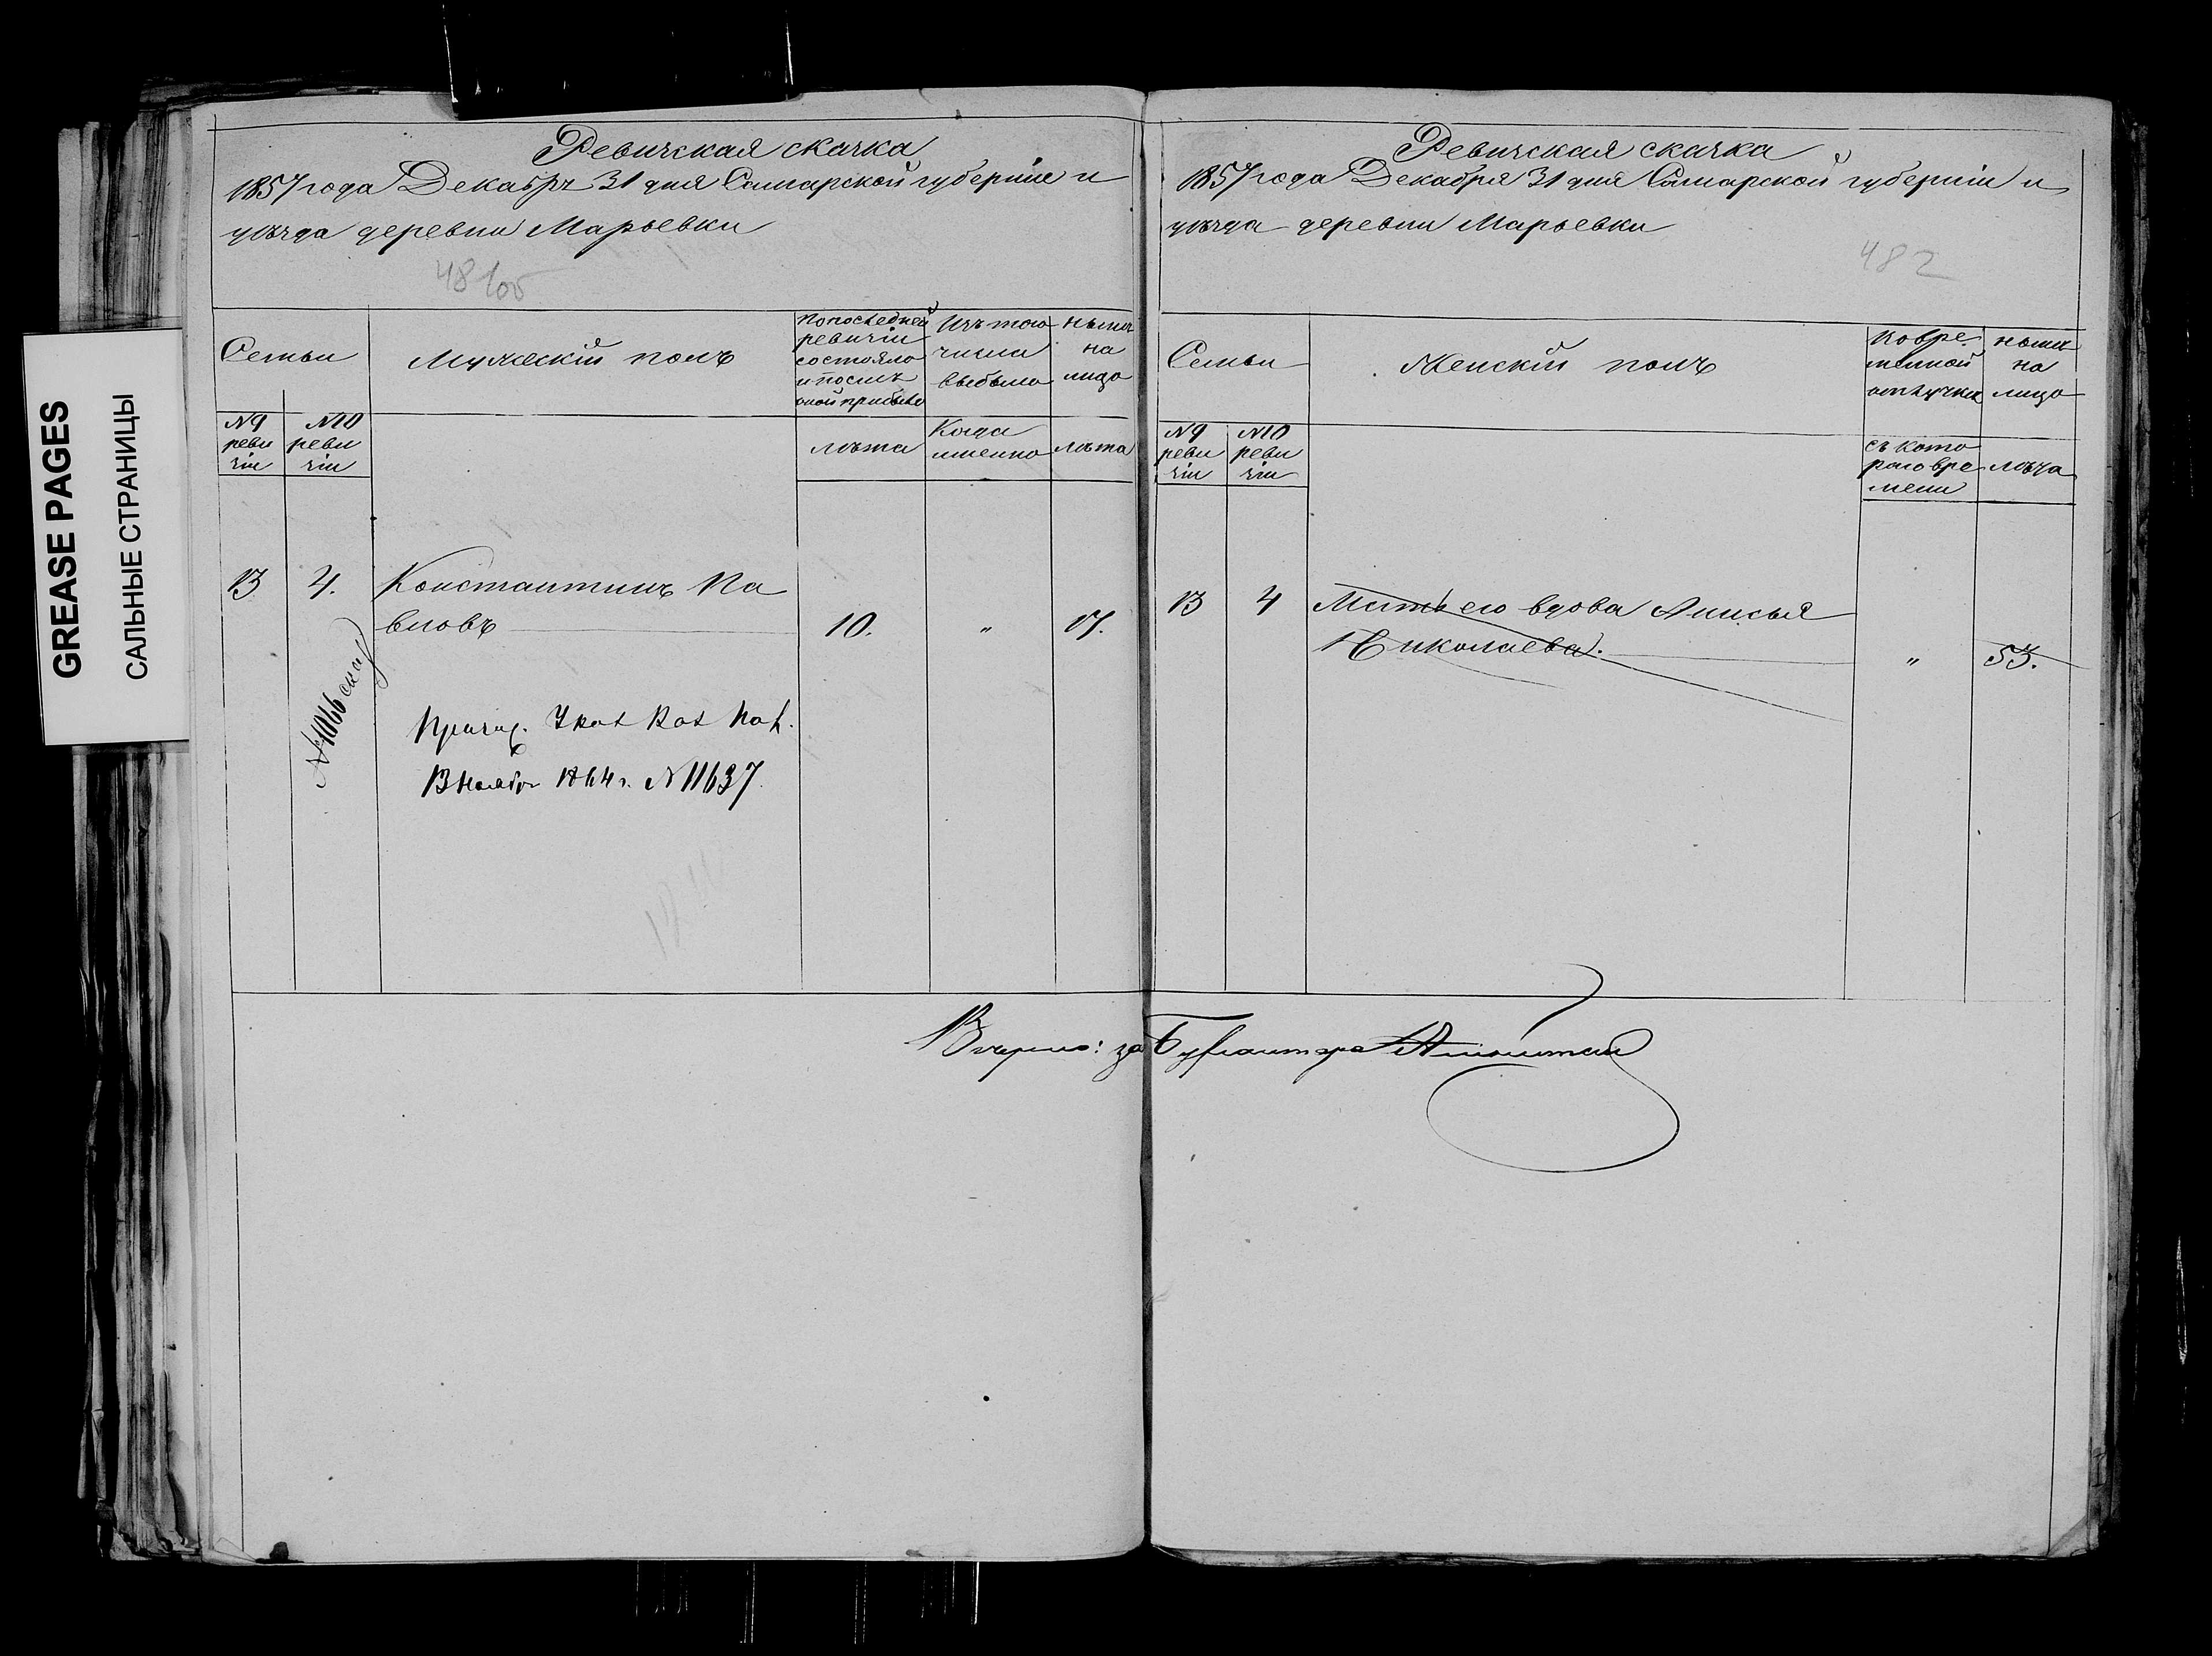 GREASE PAGES
САЛЬНЫЕ СТРАНИЦЫ
Ревизская сказка
1857 года Декабря 31 дня Самарской губерніи и
уѣзда деревни Марьевки
Семьи
Мужескій полъ
По последней
ревизіи
состояло
и послѣ
оной прибыло
Изъ того
числа
выбыло
Нынѣ
на
лицо
№9
реви
зіи
№10
реви
зіи
лѣта
Когда
именно
лѣта
13
4.
Константинъ Па
вловъ
10.
"
17.
Причис. Указ Каз Пал.
13 Ноября 1864 г. N 11637.
Ревизская сказка
1857 года Декабря 31 дня Самарской губерніи и
уѣзда деревни Марьевки
482
Семьи
Женскій полъ
Во вре
менной
отлучкѣ
Нынѣ
на
лицо
№9
реви
зіи
№10
реви
зіи
съ кото
раго вре
мени
лѣта
13
4
Мать его вдова Анисья
Николаева.
"
53.
Вѣрно: за Бухгалтера